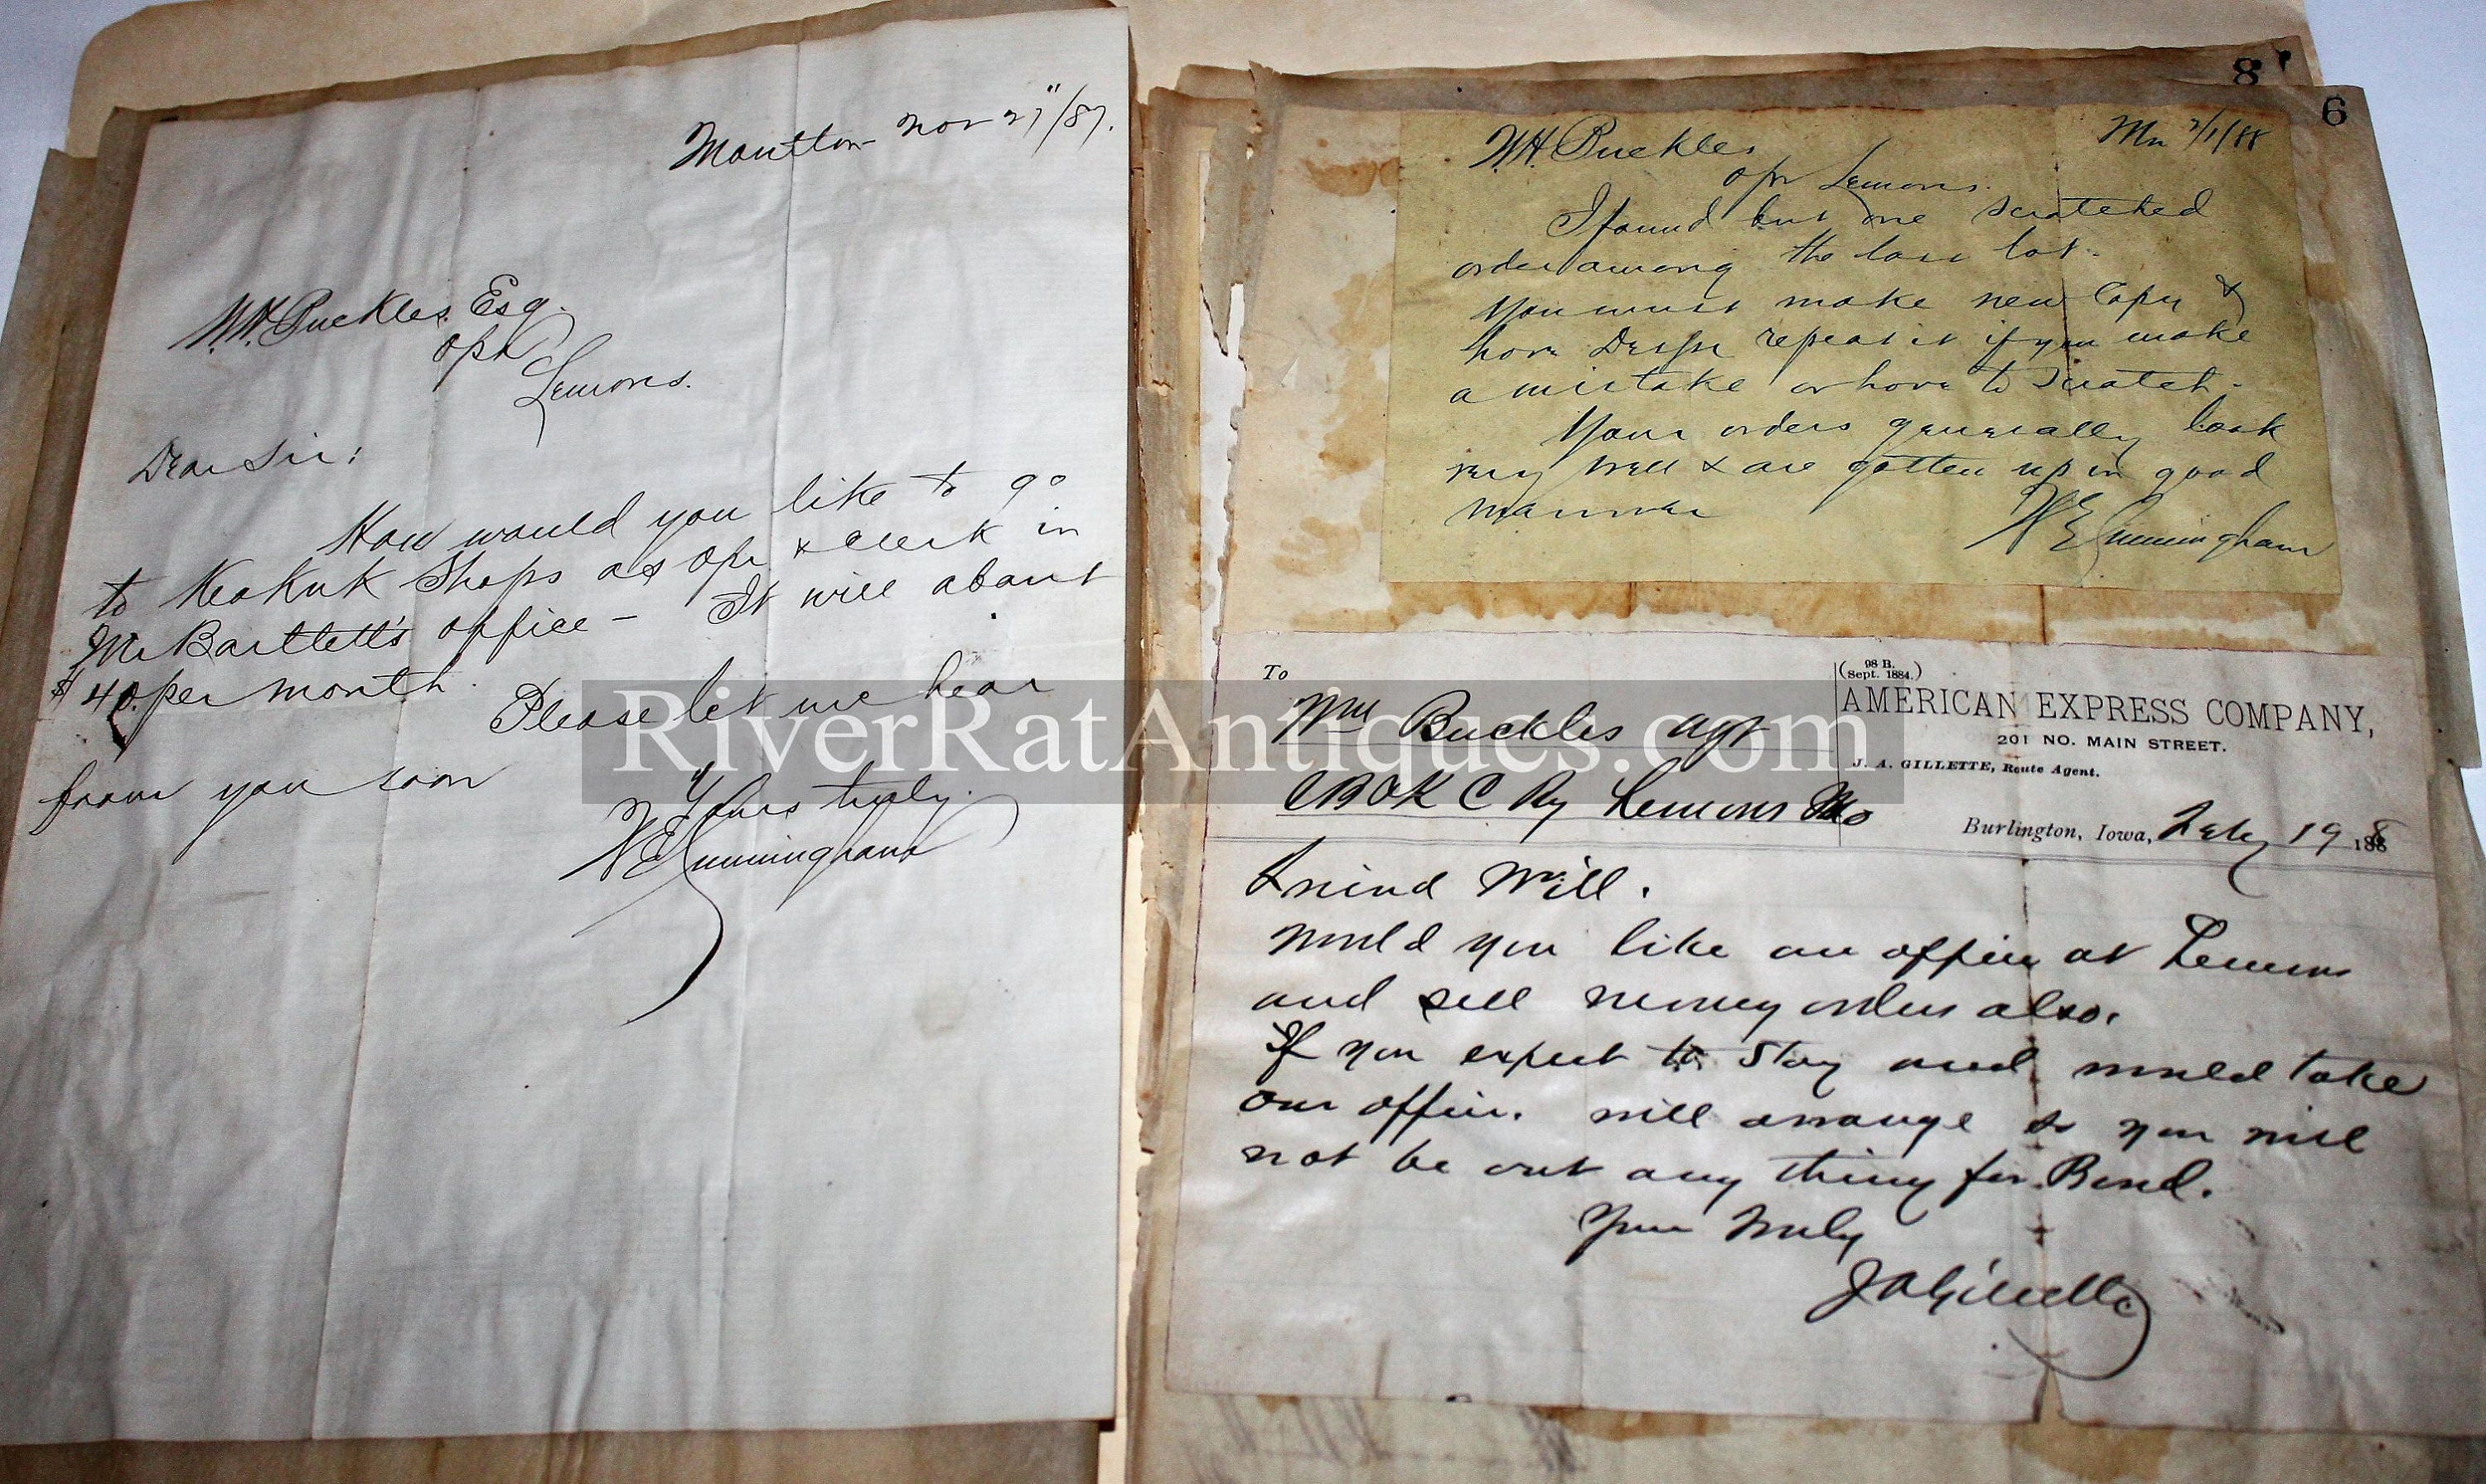 Moulton Nov 27"/87.
W.H. Buckles. Esq.
opr
Lemons.
Dear Sir:
How would you like to go
to Keokuk Shops as opr & clerk in
Mr Bartlett's office - It will about
$40. per month. Please let me hear
from you soon
Yours truly.
W E Cunningham
8
6
W.H. Buckles Mn 2/1/88
opr Lemons.
I found but one scratched
order among the last lot.
You must make new Copy &
have Despr repeat it if you make
a mistake or have to scratch -
Your orders generally look
very well & are gotten up in good
manner
W E Cunningham
To
Wm Buckles agt
C B & K C Ry Lemons Mo
(98 B. Sept. 1884.)
AMERICAN EXPRESS COMPANY,
201 NO. MAIN STREET.
J. A. GILLETTE, Route Agent.
Burlington, Iowa, Feby 19 1888
Friend Will.
Would you like an office at Lemons
and sell money orders also.
If you expect to stay and would take
our office. will arrange so you will
not be out any thing for Bond.
Your Truly
J A Gillette
RiverRatAntiques.com